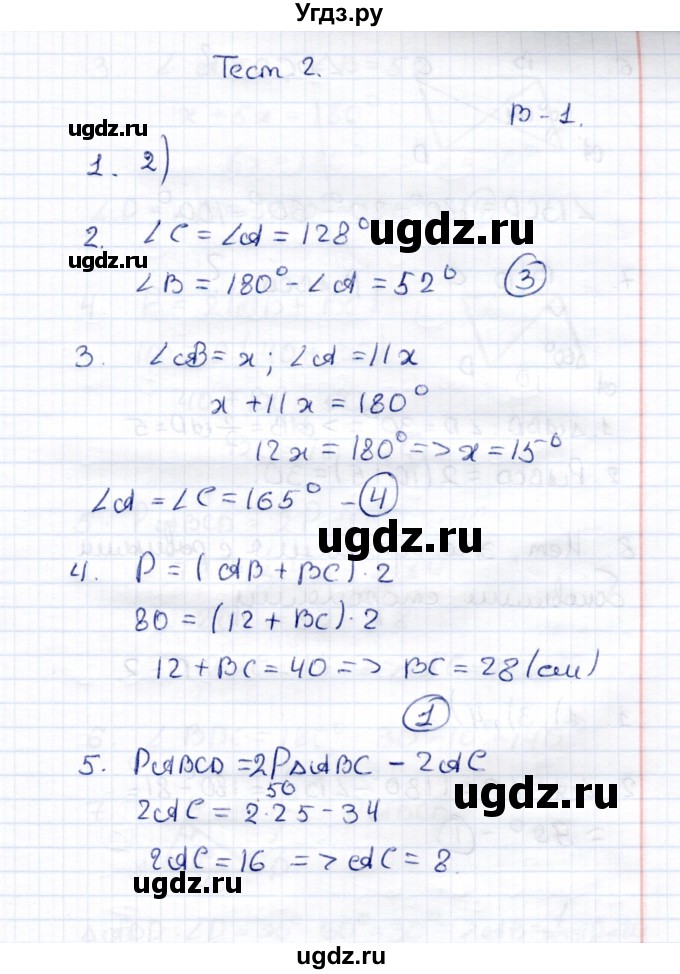 Угдз.ру
Тест 2.
B - 1.
ugdz.ru
1. 2)
2. ∠C = ∠A = 128°
ugdz.ru
ugdz.ru
∠B = 180° - ∠A = 52° 3
3. ∠B = x ; ∠A = 11x
x + 11x = 180°
12x = 180° => x = 15°
∠A = ∠C = 165° - 4
ugdz.ru
4. P = (AB + BC) · 2
80 = (12 + BC) · 2
12 + BC = 40 => BC = 28 (см)
1
5. PABCD = 2PΔABC - 2AC
50
2AC = 2·25 - 34
ugdz.ru
2AC = 16 => AC = 8.
ugdz.ru
ugdz.ru